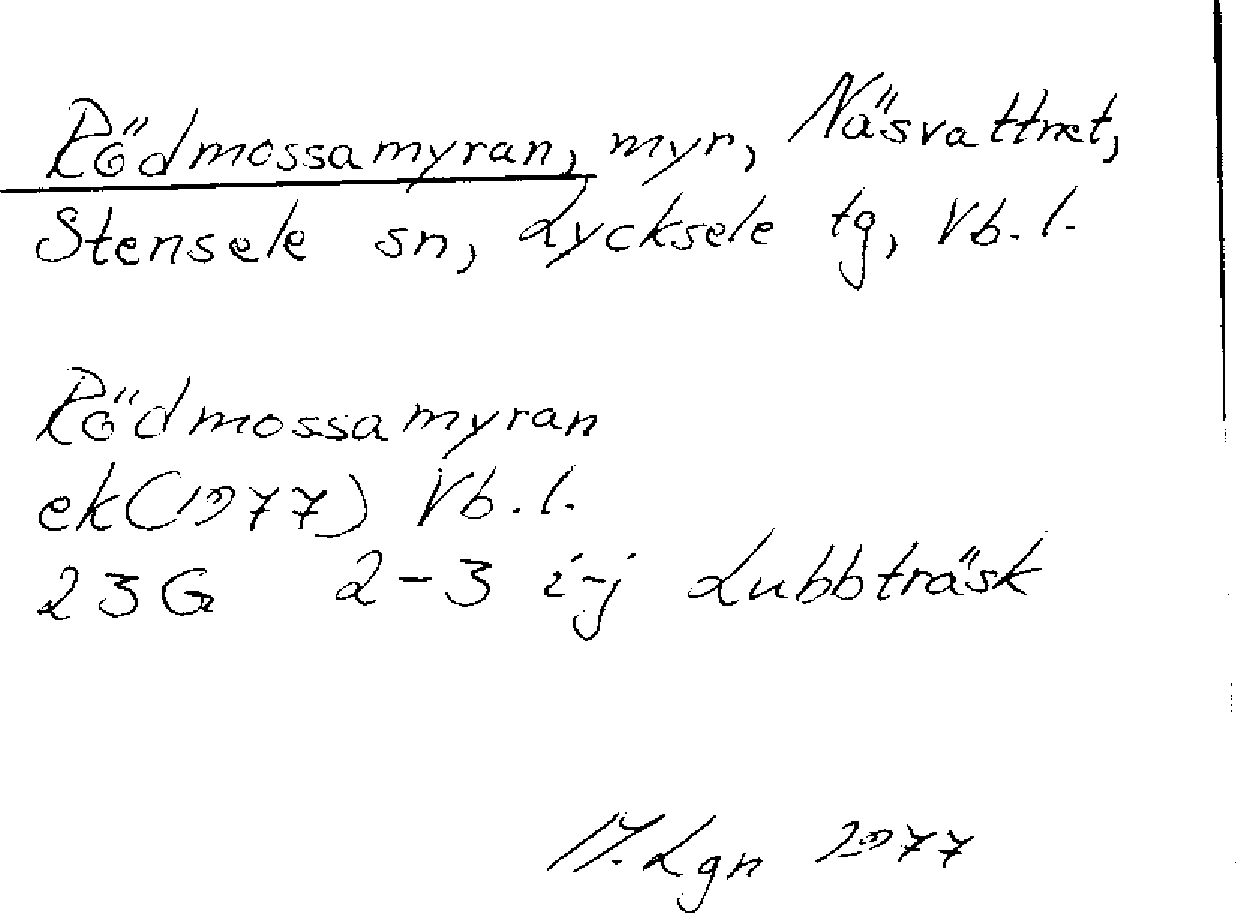 Rödmossamyran, myr, Näsvattnet,
Stensele sn, Lycksele tg, Vb. l.
Rödmossamyran
ek (1977) Vb. l.
23G 2-3 i-j Lubbträsk
Lgn 1977